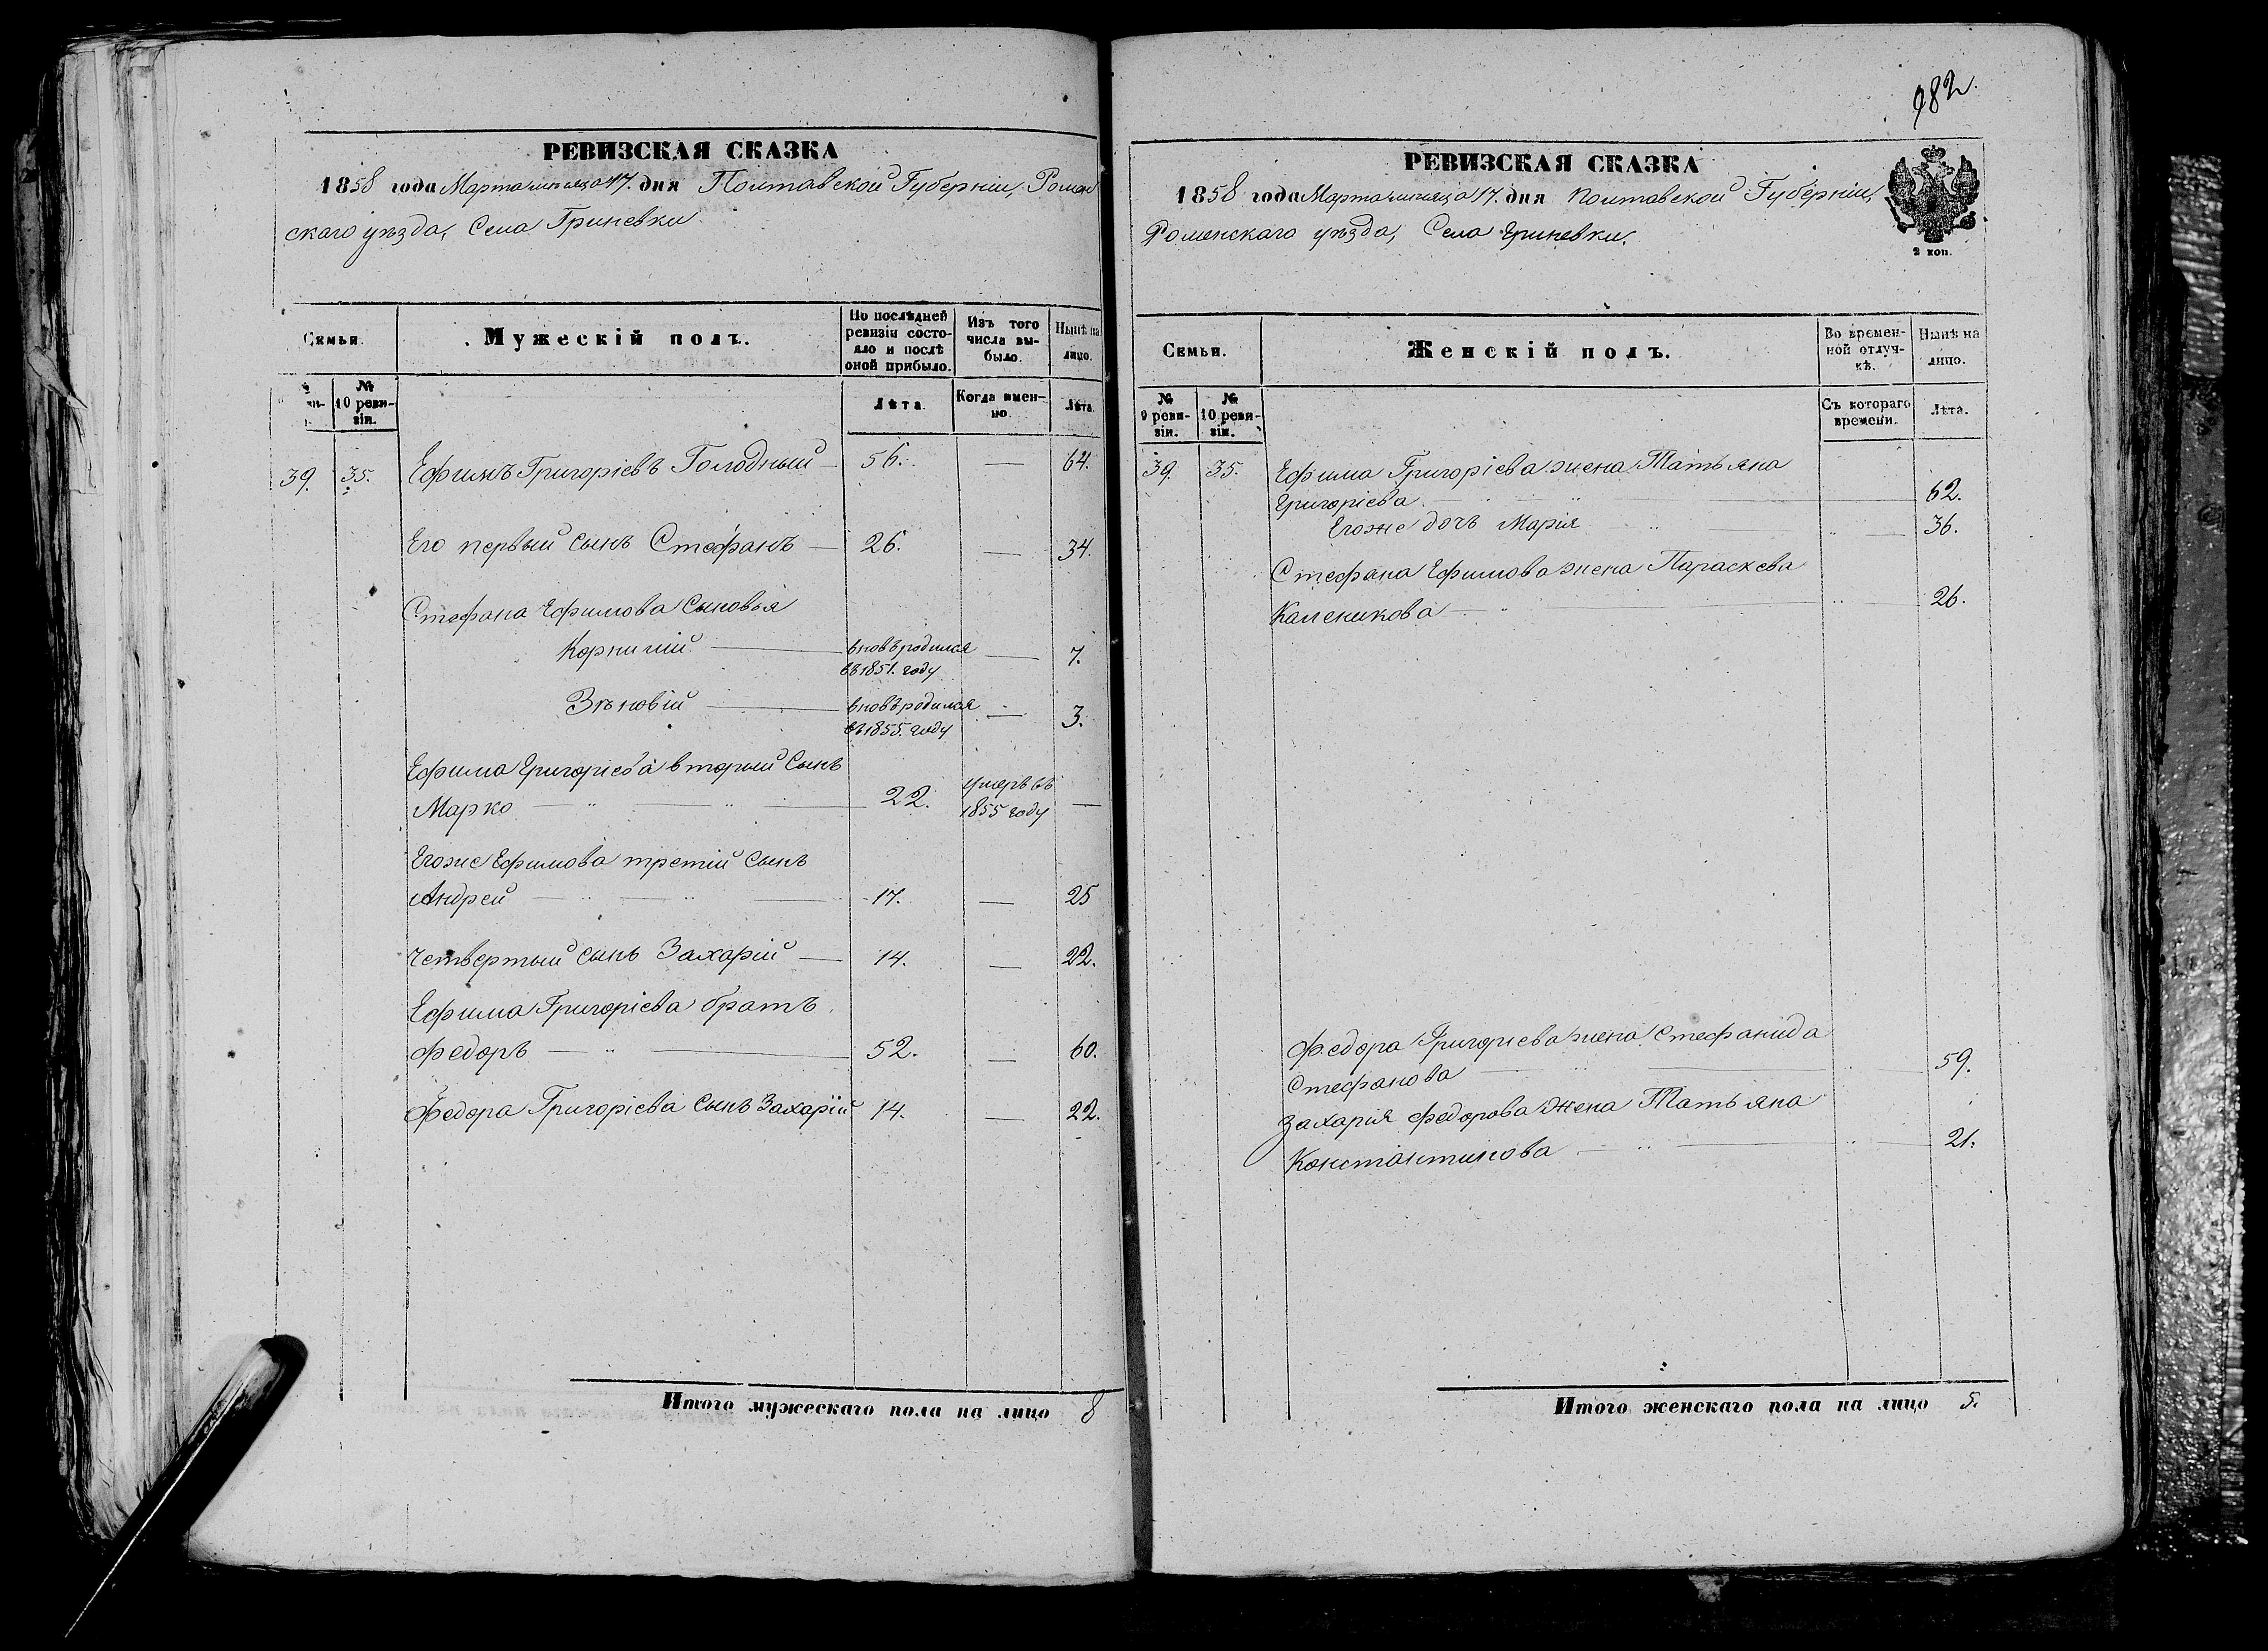 РЕВИЗСКАЯ СКАЗКА
1858 года Марта мѣсяца 17. дня Полтавской Губерніи, Ромен
скаго уѣзда, Села Гриневки
Семьи. Мужескій полъ. По послѣдней ревизіи состояло и послѣ оной прибыло. Изъ того числа выбыло. Нынѣ на лицо.
№ 10 ревизіи. Лѣта. Когда имен-но. Лѣта.
39. 35. Ефимъ Григоріевъ Голодный 56. — 64.
Его первый сынъ Стефанъ — 26. — 34.
Стефана Ефимова сыновья
Корнилій — вновь родился въ 1851. году — 7.
Зѣновій — вновь родился въ 1855. году — 3.
Ефима Григоріева вторый сынъ
Марко — 22. умеръ въ 1855 году —
Егоже Ефимова третій сынъ
Андрей — 17. — 25
Четвертый сынъ Захарій — 14. — 22.
Ефима Григоріева братъ
Федоръ — 52. — 60.
Федора Григоріева сынъ Захарій 14. — 22.
Итого мужескаго пола на лицо 8
982.
РЕВИЗСКАЯ СКАЗКА
1858 года Марта мѣсяца 17. дня Полтавской Губерніи,
Роменскаго уѣзда, Села Гриневки.
2 коп.
Семьи. Женскій полъ. Во временной отлучкѣ. Нынѣ на лицо.
№ 9 ревизіи. № 10 ревизіи. Съ котораго времени. Лѣта.
39. 35. Ефима Григоріева жена Татьяна
Григоріева — 62.
Егоже дочь Марія — 36.
Стефана Ефимова жена Параскева
Каленикова — 26.
Федора Григоріева жена Стефанида
Стефанова — 59.
Захарія Федорова жена Татьяна
Константинова — 21.
Итого женскаго пола на лицо 5.